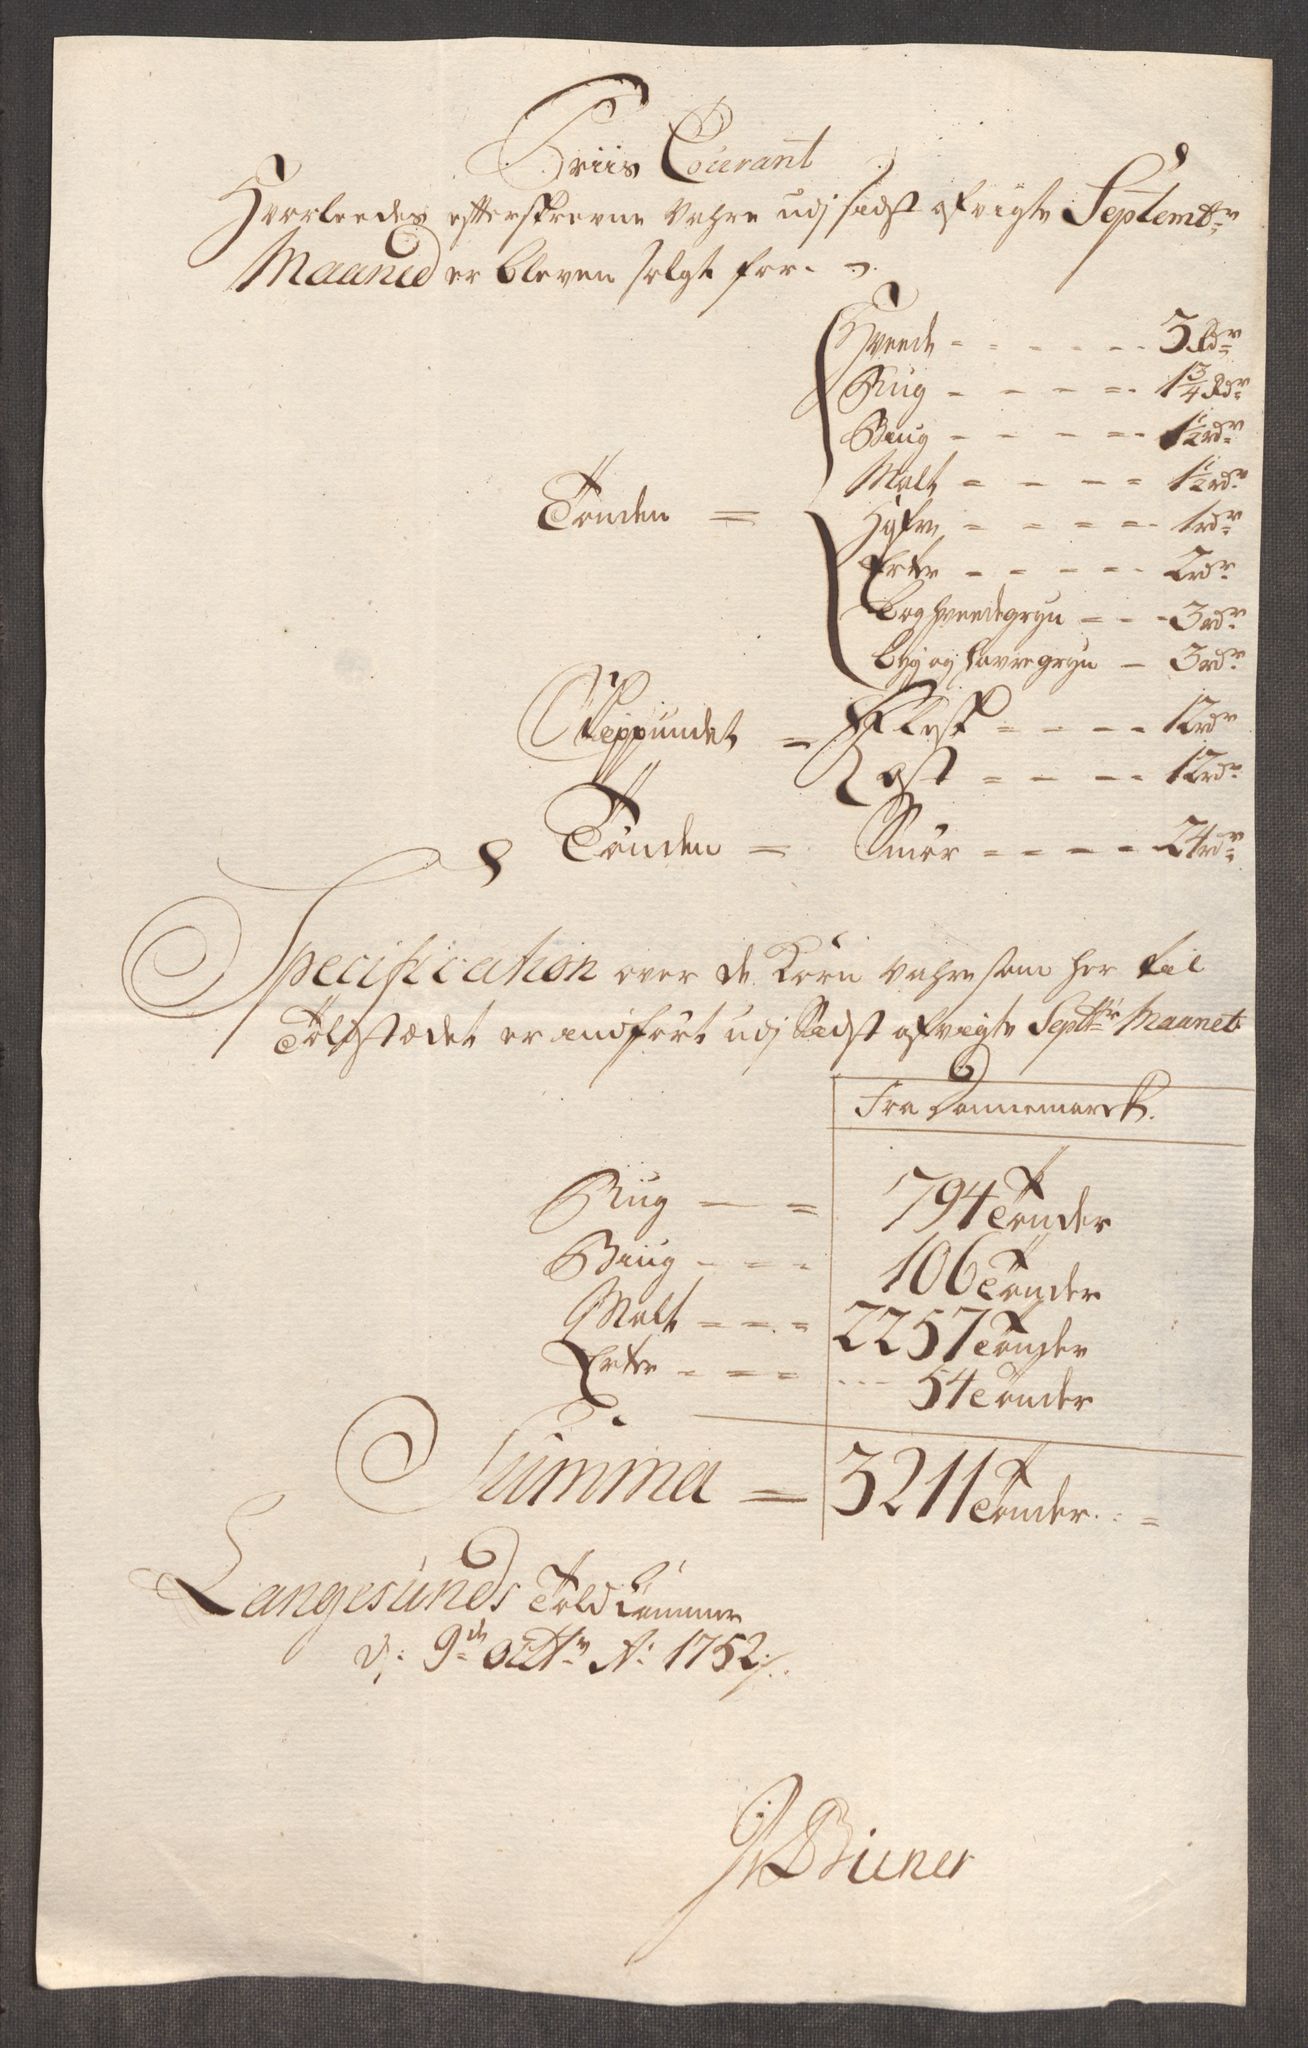 Priis Courant
Hvorleedes efterskrevne Vahre udj sidst afvigte Septembr
Maaned er bleven solgt for.
Hveede - - - - - - 3 Rdr
Rug - - - - - 1 3/4 Rdr
Biug - - - - - 1 1/2 rdr
Malt - - - - - 1 1/2 rdr
Tønden = Hafre - - - - - 1 rdr
Erter - - - - - 2 rdr
Boghveedegryn - - - 3 rdr
Byg og Havregryn - 3 rdr
Skippundet = Flesk - - - - 12 rdr
Ost - - - - 12 rdr
Tønden = Smør - - - - 24 rdr
Specification over de Korn Vahre som her til
Toldstædet er andført udj Sidst afvigte Septbr Maanet
Fra Dannemarck.
Rug - = 794 Tønder
Biug - - - 106 Tønder
Malt - - - 2257 Tønder
Erter - - - 54 Tønder
Summa = 3211 Tønder
Langesunds Told Cammer
d: 9de octbr Ao 1752